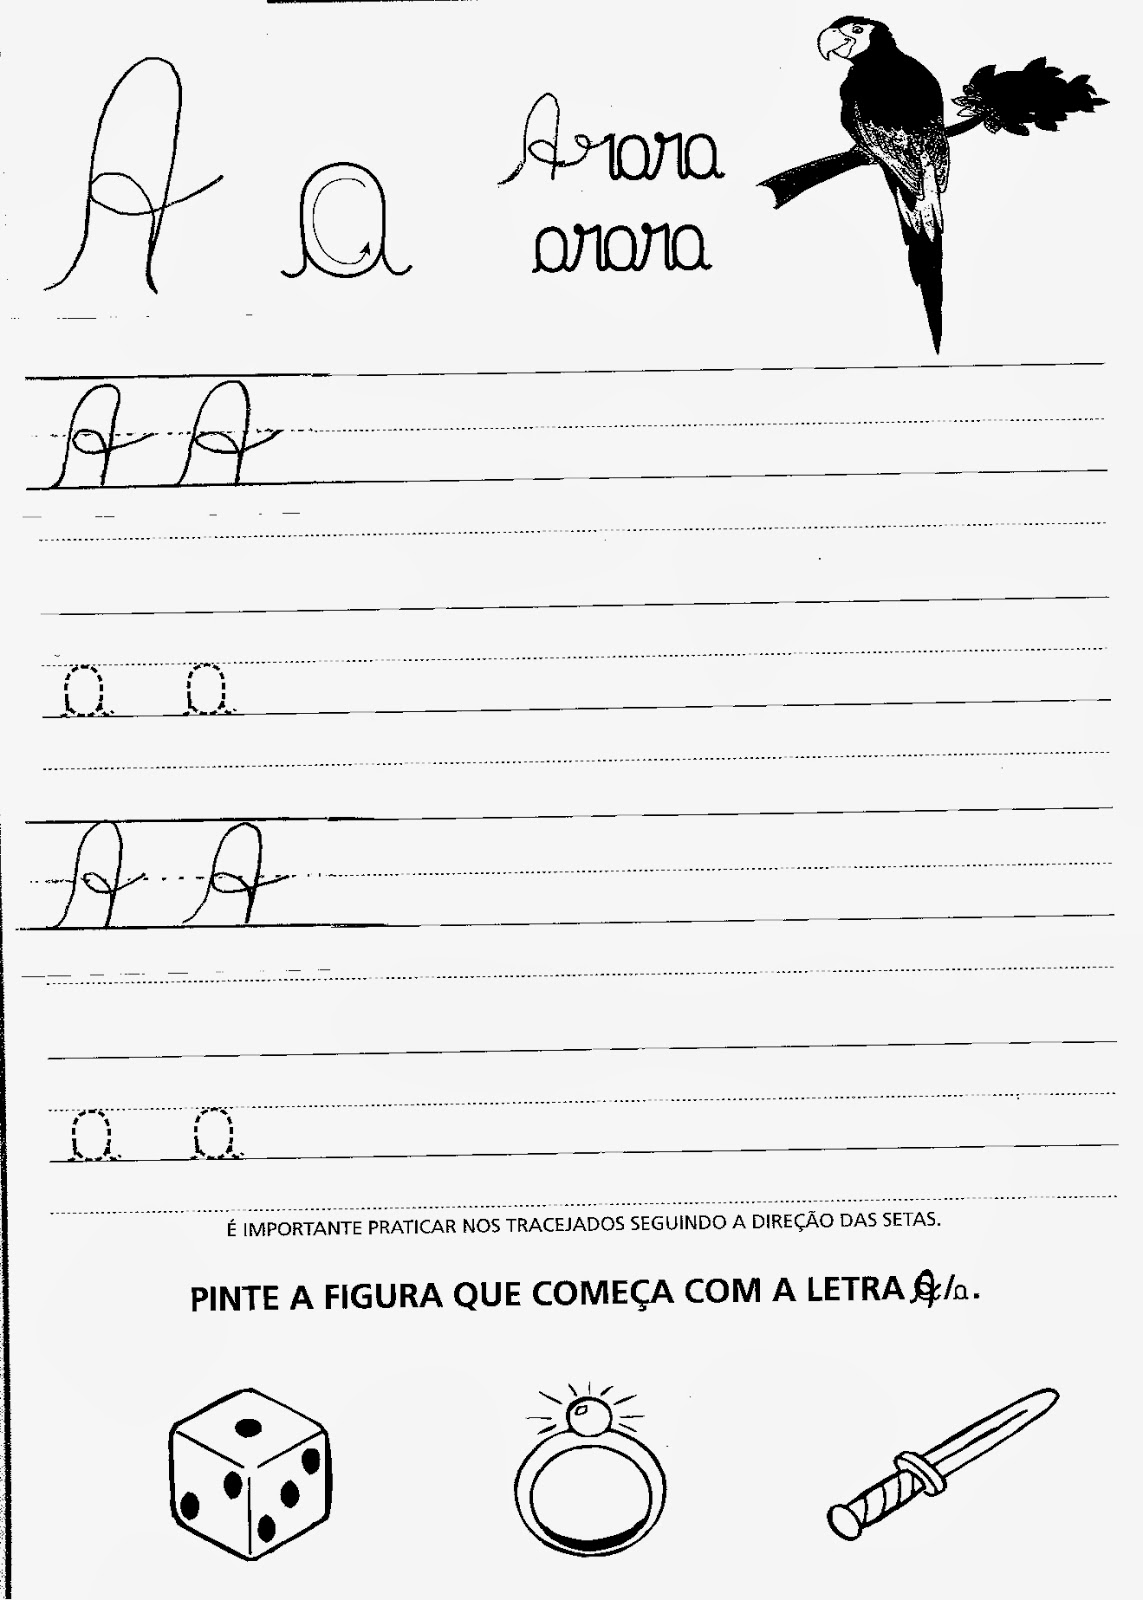 A a
Arara
arara
A A
a a
A A
a a
É IMPORTANTE PRATICAR NOS TRACEJADOS SEGUINDO A DIREÇÃO DAS SETAS.
PINTE A FIGURA QUE COMEÇA COM A LETRA A/a.